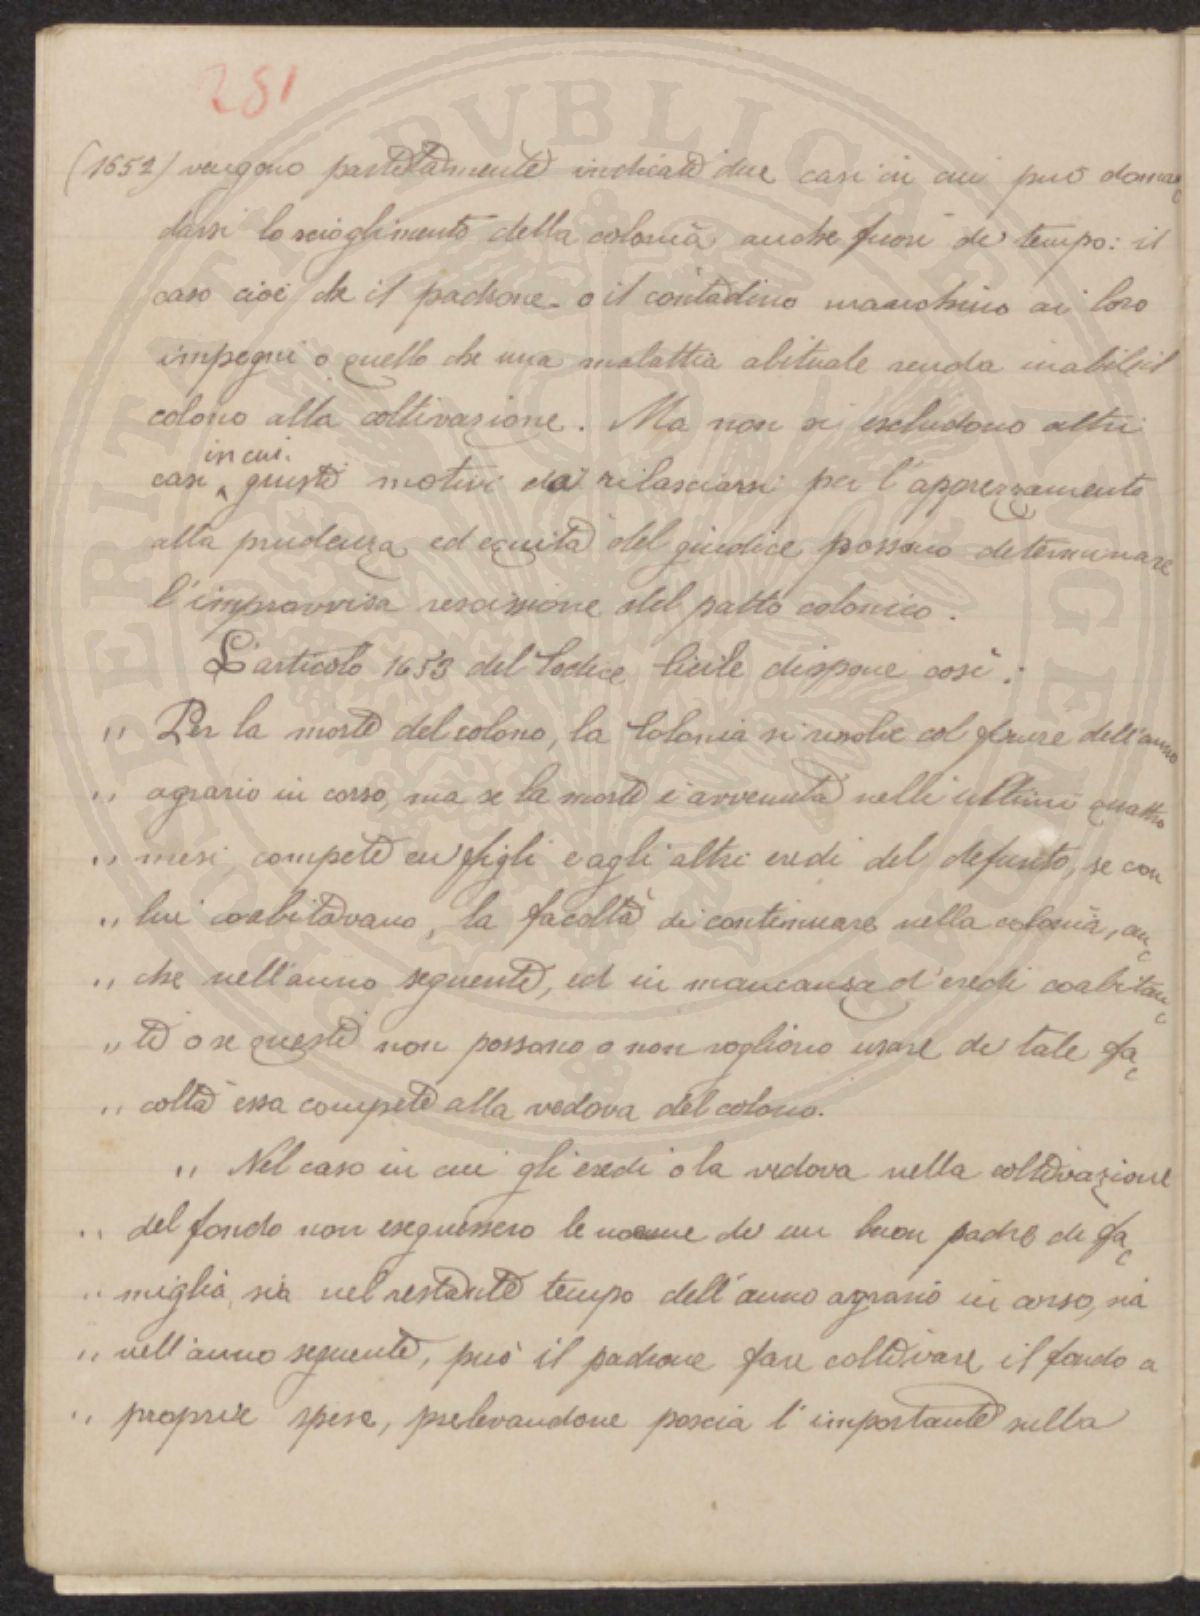 281
(1652) vengono partitamente indicati due casi in cui può doman
darsi lo scioglimento della colonia anche fuori di tempo: il
caso cioè che il padrone o il contadino manchino ai loro
impegni o quello che una malattia abituale renda inabile il
colono alla coltivazione. Ma non si escludono altri
in cui
casi giusti motivi da rilasciarsi per l'apprezzamento
alla prudenza ed equità del giudice possano determinare
l'improvvisa rescissione del patto colonico.
L'articolo 1653 del Codice Civile dispone così:
" Per la morte del colono, la Colonia si risolve col finire dell'anno
" agrario in corso, ma se la morte è avvenuta nelli ultimi quattro
" mesi, compete ai figli e agli altri eredi del defunto, se con
" lui coabitavano, la facoltà di continuare nella colonia, an
" che nell'anno seguente, ed in mancanza d'eredi coabitan
" ti o se questi non possono o non vogliono usare di tale fa
" coltà essa compete alla vedova del colono.
" Nel caso in cui gli eredi o la vedova nella coltivazione
" del fondo non eseguissero le norme di un buon padre di fa
" miglia, sia nel restante tempo dell'anno agrario in corso, sia
" nell'anno seguente, può il padrone fare coltivare il fondo a
" proprie spese, prelevandone poscia l'importante sulla
PUBLICAE